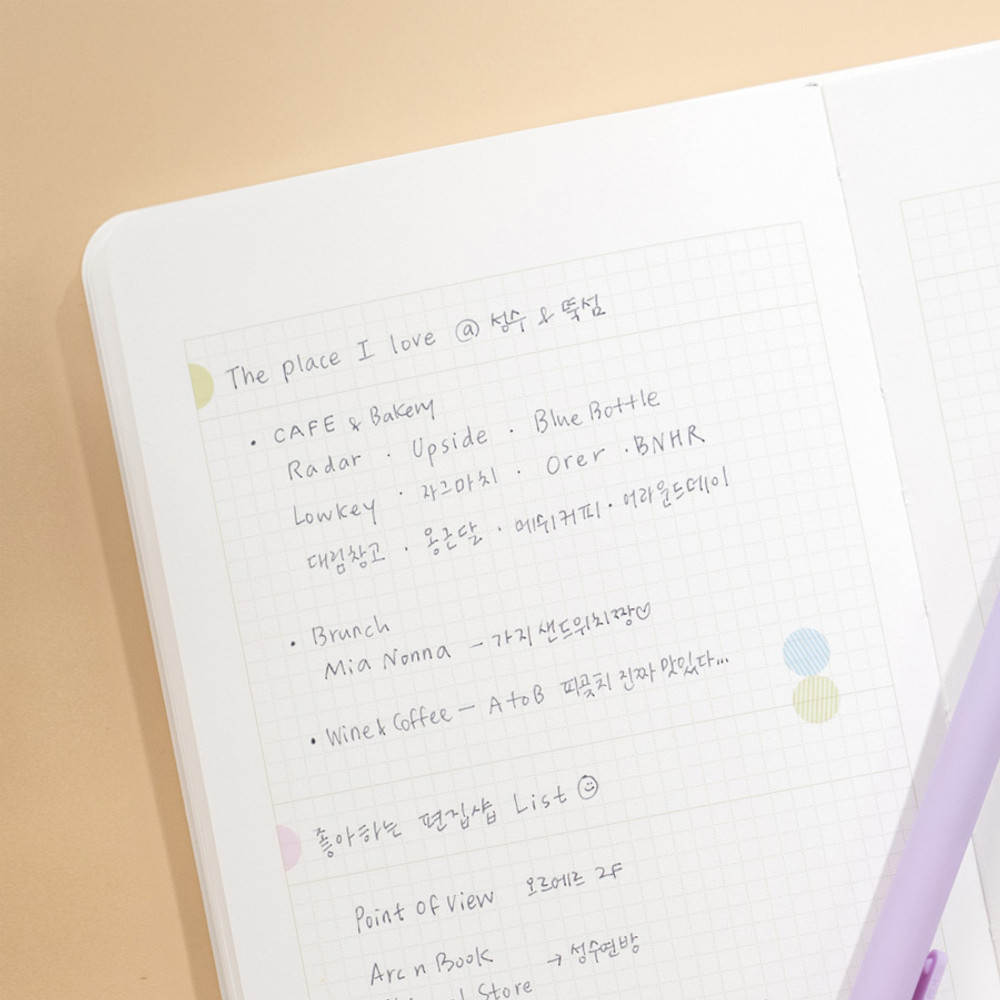 The place I love @ 성수 & 뚝섬
• CAFE & Bakery
Radar · Upside · Blue Bottle
Lowkey · 자그마치 · Orer · BNHR
대림창고 · 옹근달 · 메쉬커피 · 어라운드데이
• Brunch
Mia Nonna - 가지 샌드위치 짱♡
• Wine & Coffee - A to B 피꽂치 진짜 맛있다...
좋아하는 편집샵 List ☺
Point Of View 오르에르 2F
Arc n Book → 성수연방
Store